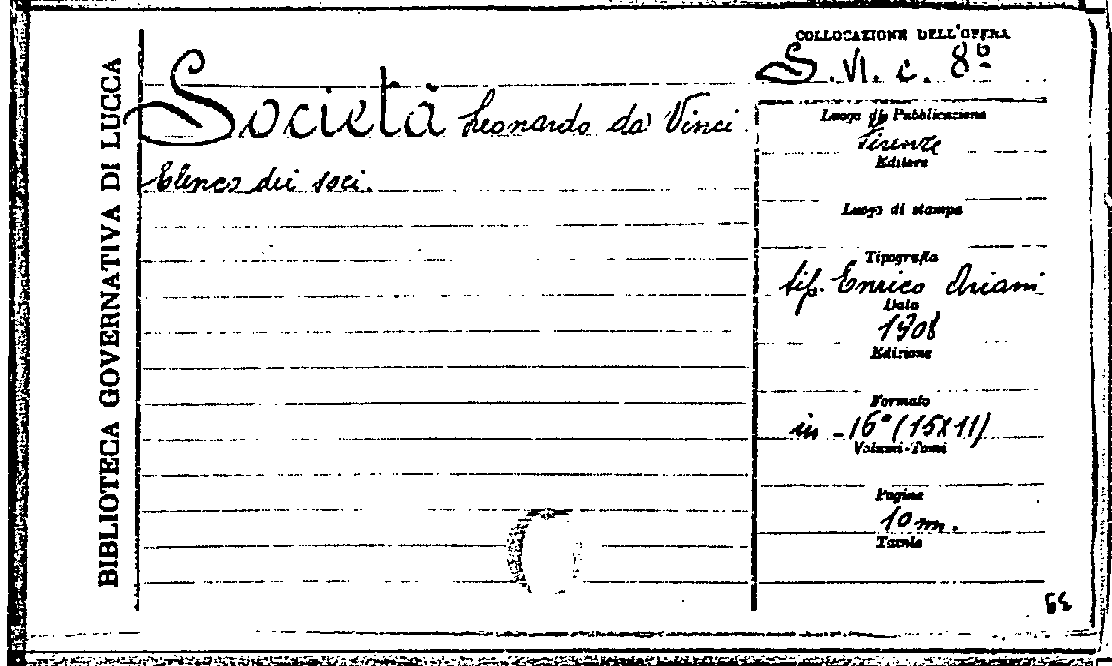 BIBLIOTECA GOVERNATIVA DI LUCCA
Società Leonardo da Vinci
Elenco dei soci.
COLLOCAZIONE DELL'OPERA
S. VI. c. 8º
Luogo di Pubblicazione
Firenze
Editore
Luogo di stampa
Tipografia
tip. Enrico Ariani
Data
1908
Edizione
Formato
in -16° (15X11)
Volumi-Tomi
Pagine
10 nn.
Tavole